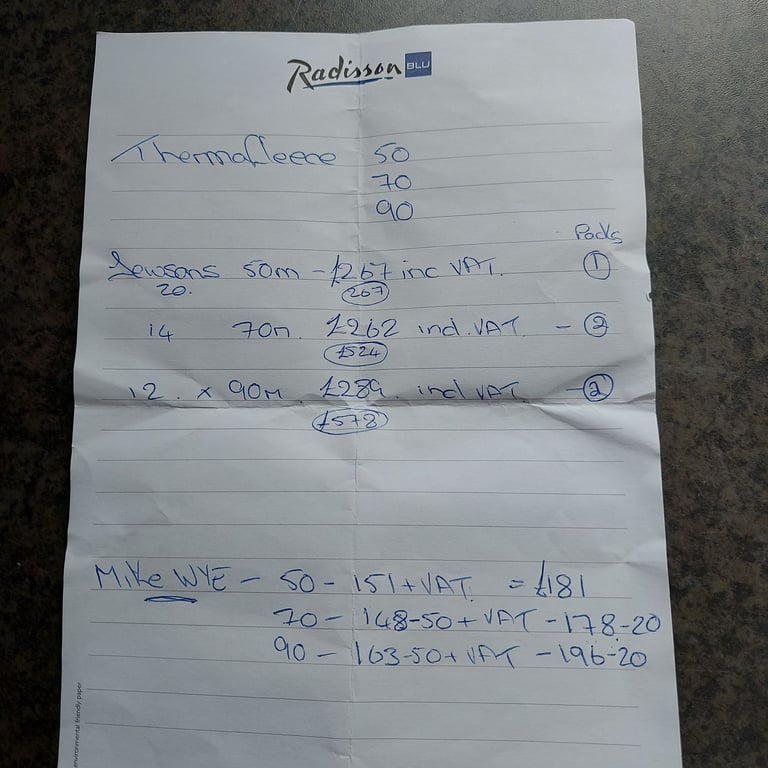 Radisson BLU
Thermafleece 50
70
90
Packs
Sewsons 50m - £267 inc VAT. 1
20. 267
14 70m. £262 incl. VAT - 2
£524
12. x 90m. £289. incl VAT - 2
£578
Mike WYE - 50 - 151 + VAT = £181
70 - 148-50 + VAT - 178-20
90 - 163-50 + VAT - 196-20
environmental friendly paper